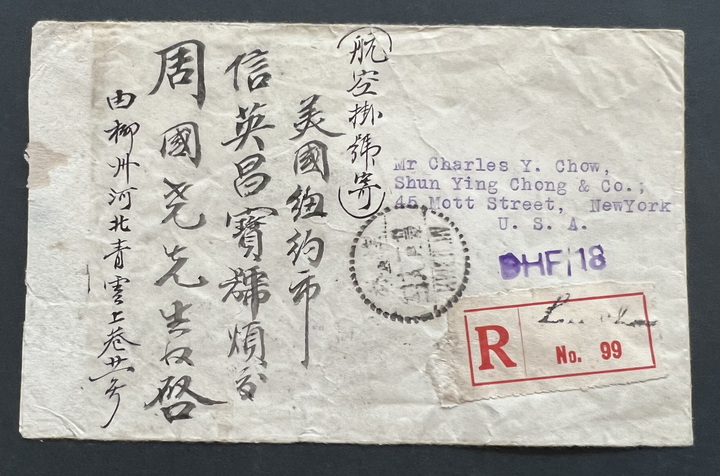 航空掛號寄
美國紐約市
信英昌寶號煩交
周國堯先生收啓
由柳州河北青雲上巷廿一号
Mr Charles Y. Chow,
Shun Ying Chong & Co.;
45 Mott Street, NewYork
U. S. A.
DHF/18
R
No. 99